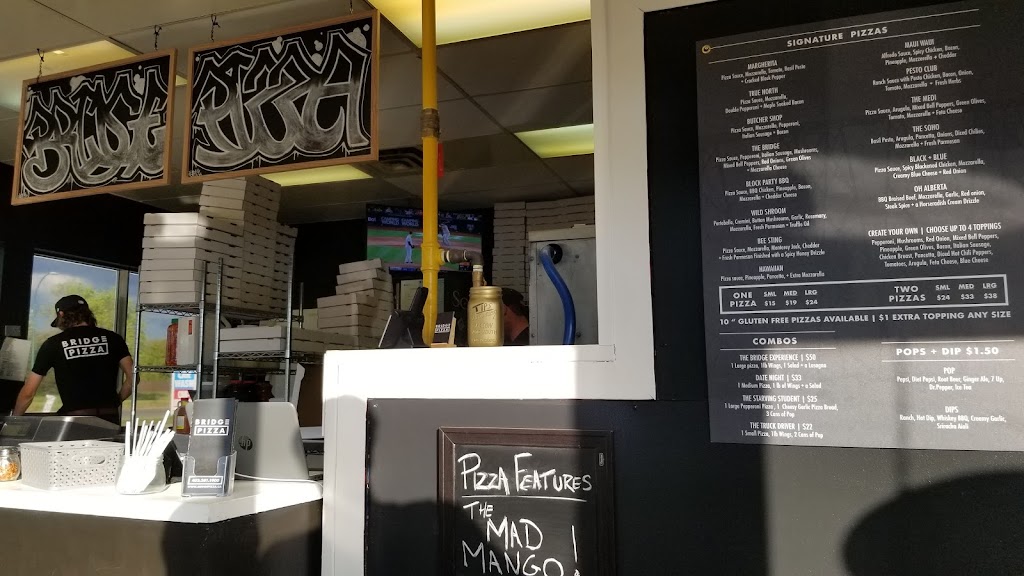 BRIDGE
PIZZA
BRIDGE
PIZZA
BRIDGE
PIZZA
PIZZA FEATURES
THE
MAD
MANGO!
SIGNATURE PIZZAS
MARGHERITA
Pizza Sauce, Mozzarella, Tomato, Basil Pesto
+ Cracked Black Pepper
TRUE NORTH
Pizza Sauce, Mozzarella,
Double Pepperoni + Maple Smoked Bacon
BUTCHER SHOP
Pizza Sauce, Mozzarella, Pepperoni,
Italian Sausage + Bacon
THE BRIDGE
Pizza Sauce, Pepperoni, Italian Sausage, Mushrooms,
Mixed Bell Peppers, Red Onion, Green Olives
+ Mozzarella Cheese
BLOCK PARTY BBQ
Pizza Sauce, BBQ Chicken, Pineapple, Bacon,
Mozzarella + Cheddar Cheese
WILD SHROOM
Portobello, Cremini, Button Mushrooms, Garlic, Rosemary,
Mozzarella, Fresh Parmesan + Truffle Oil
BEE STING
Pizza Sauce, Mozzarella, Monterey Jack, Cheddar
+ Fresh Parmesan Finished with a Spicy Honey Drizzle
HAWAIIAN
Pizza sauce, Pineapple, Pancetta, + Extra Mozzarella
MAUI WAUI
Alfredo Sauce, Spicy Chicken, Bacon,
Pineapple, Mozzarella + Cheddar
PESTO CLUB
Ranch Sauce with Pesto Chicken, Bacon, Onion,
Tomato, Mozzarella + Fresh Herbs
THE MEDI
Pizza Sauce, Arugula, Mixed Bell Peppers, Green Olives,
Tomato, Mozzarella + Feta Cheese
THE SOHO
Basil Pesto, Arugula, Pancetta, Onions, Diced Chilies,
Mozzarella + Fresh Parmesan
BLACK + BLUE
Pizza Sauce, Spicy Blackened Chicken, Mozzarella,
Creamy Blue Cheese + Red Onion
OH ALBERTA
BBQ Braised Beef, Mozzarella, Garlic, Red onion,
Steak Spice + a Horseradish Cream Drizzle
CREATE YOUR OWN | CHOOSE UP TO 4 TOPPINGS
Pepperoni, Mushrooms, Red Onion, Mixed Bell Peppers,
Pineapple, Green Olives, Bacon, Italian Sausage,
Chicken Breast, Pancetta, Diced Hot Chili Peppers,
Tomatoes, Arugula, Feta Cheese, Blue Cheese
ONE PIZZA SML $15 MED $19 LRG $24
TWO PIZZAS SML $24 MED $33 LRG $38
10 " GLUTEN FREE PIZZAS AVAILABLE | $1 EXTRA TOPPING ANY SIZE
COMBOS
THE BRIDGE EXPERIENCE | $50
1 Large pizza, 1lb Wings, 1 Salad + a Lasagna
DATE NIGHT | $33
1 Medium Pizza, 1 lb of Wings + a Salad
THE STARVING STUDENT | $25
1 Large Pepperoni Pizza, 1 Cheesy Garlic Pizza Bread,
3 Cans of Pop
THE TRUCK DRIVER | $22
1 Small Pizza, 1lb Wings, 2 Cans of Pop
POPS + DIP $1.50
POP
Pepsi, Diet Pepsi, Root Beer, Ginger Ale, 7 Up,
Dr.Pepper, Ice Tea
DIPS
Ranch, Hot Dip, Whiskey BBQ, Creamy Garlic,
Sriracha Aioli